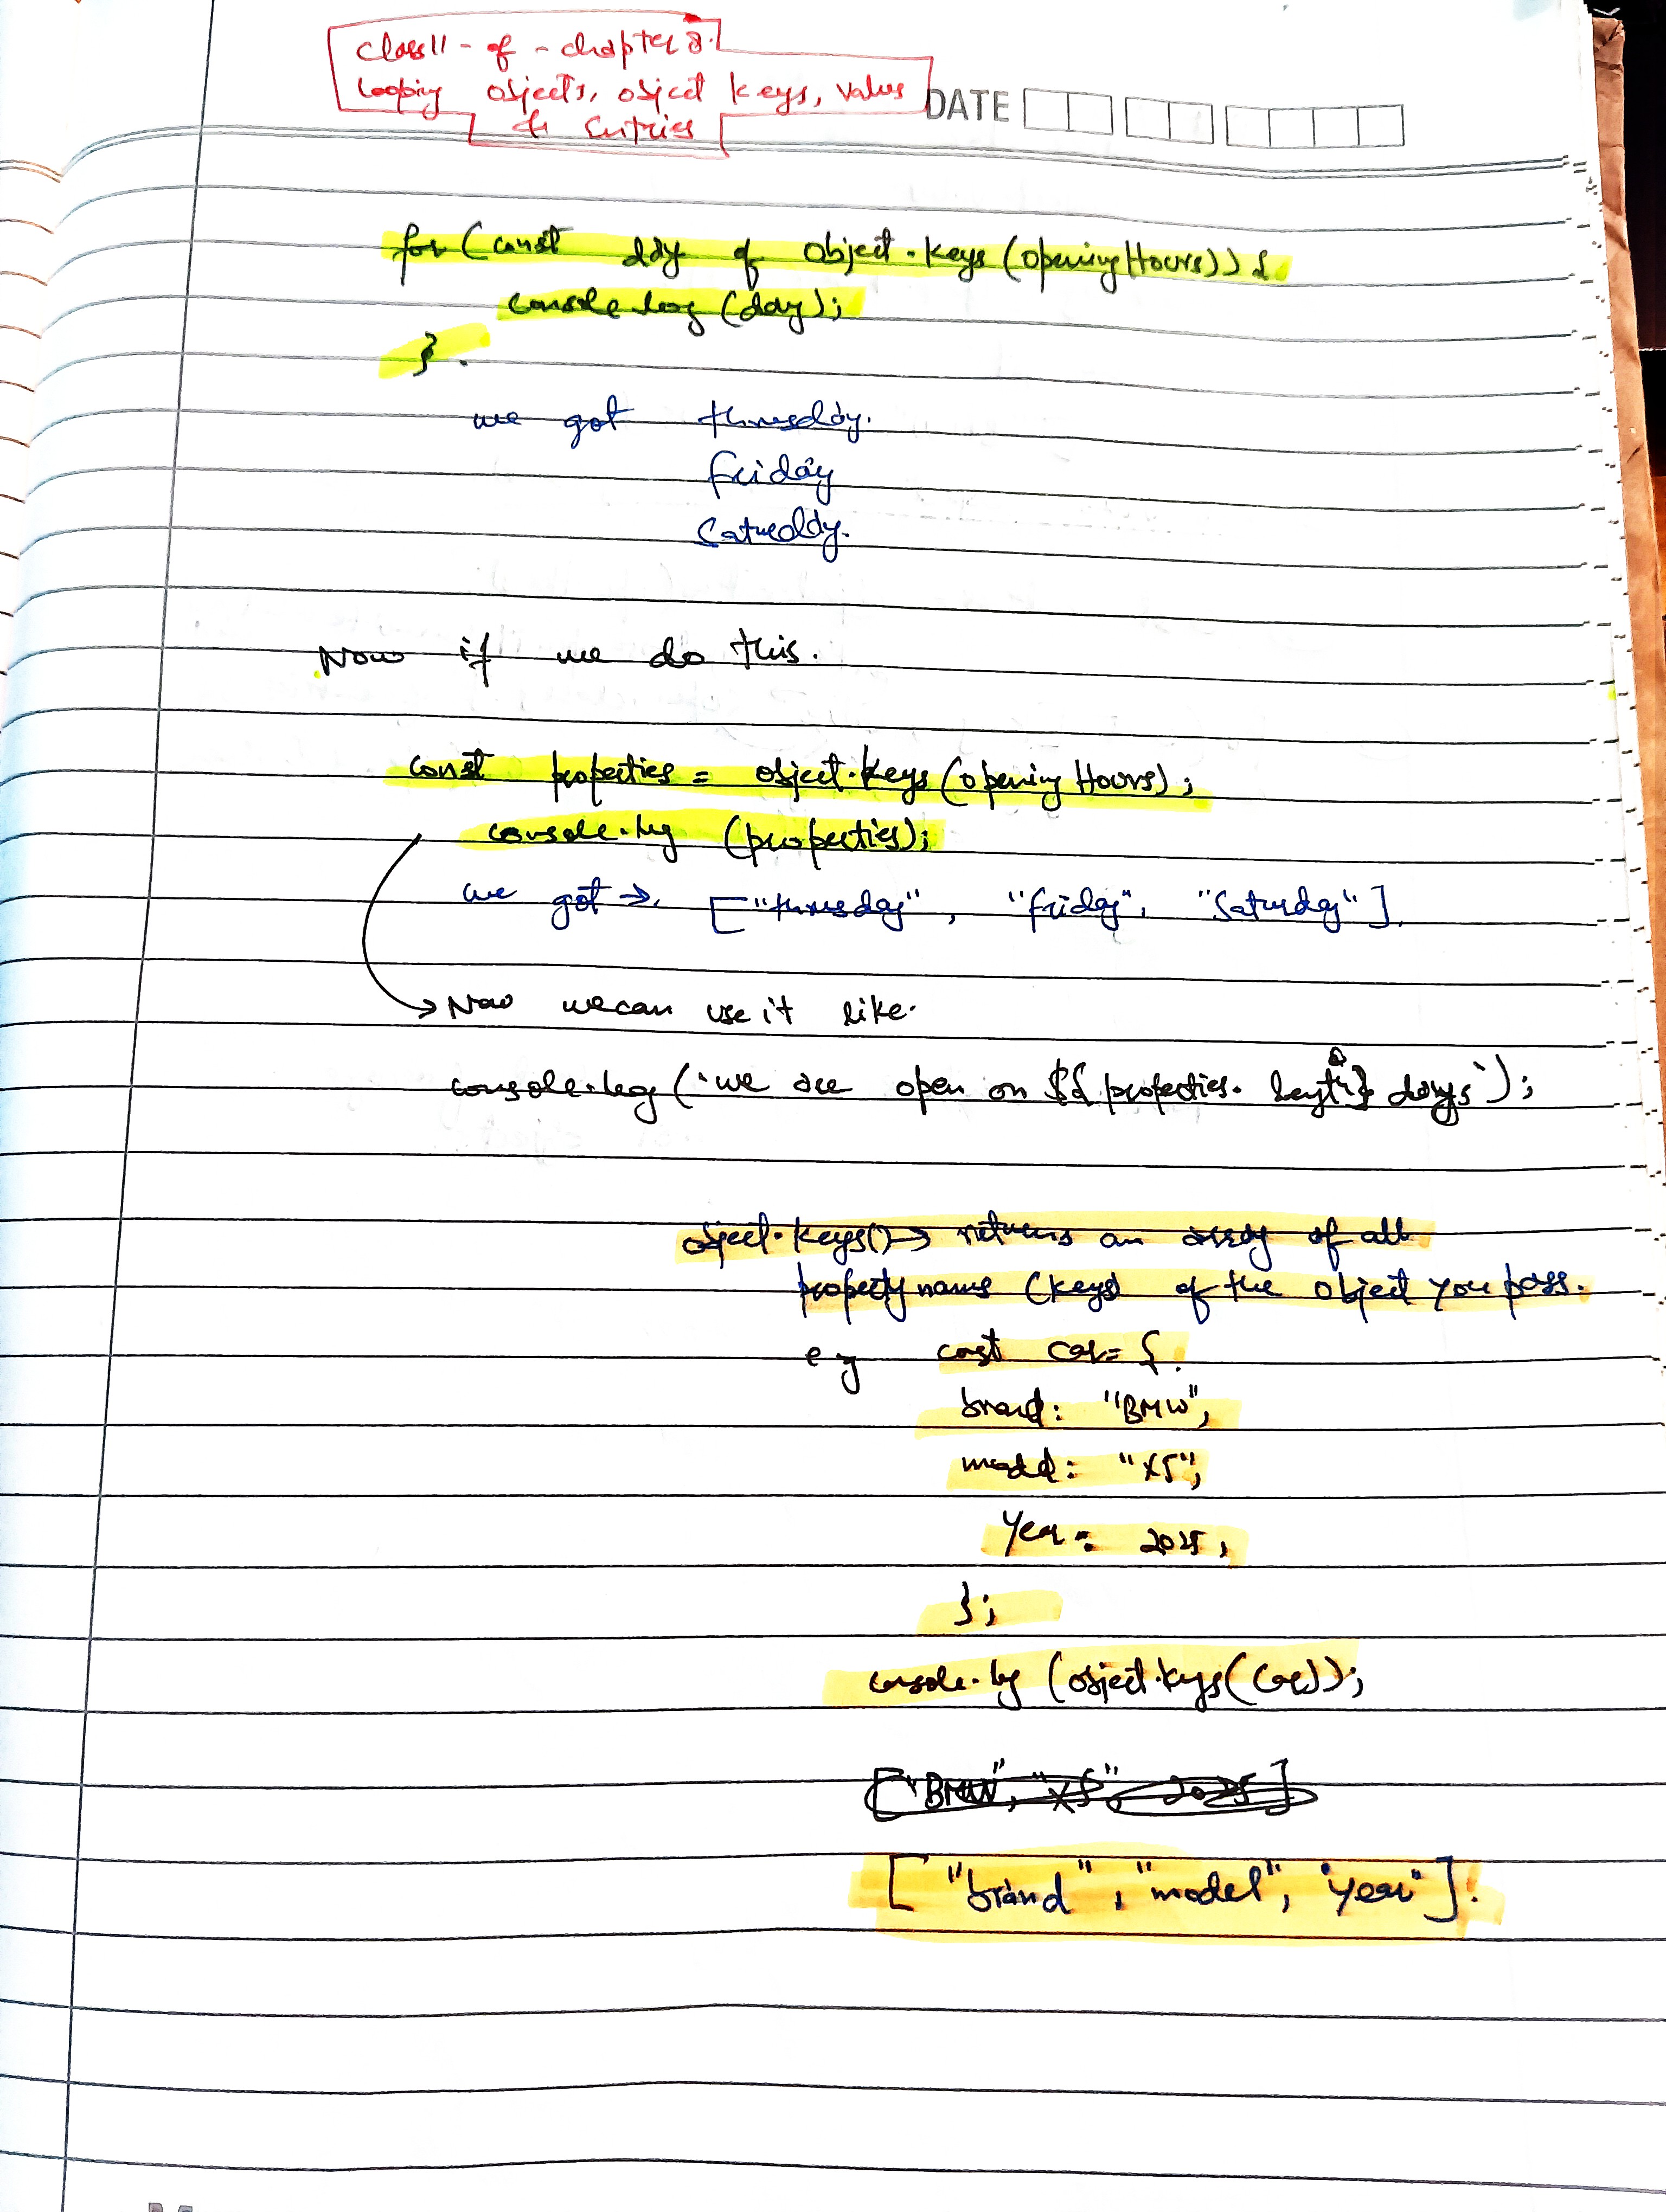 class 11 - of - chapter 8.
Looping objects, object keys, values
& Entries
DATE
for (const day of Object.keys(openingHours)) {
console.log(day);
}.
we got thursday.
friday
Saturday.
Now if we do this.
const properties = object.keys(openingHours);
console.log (properties);
we got → ["thursday", "friday", "Saturday"].
→ Now we can use it like.
console.log(`we are open on ${properties.length} days`);
object.keys() → returns an array of all
property names (keys) of the object you pass.
eg const car = {
brand: "BMW",
model: "X5",
year: 2025,
};
console.log (object.keys(car));
["BMW", "X5", 2025]
["brand", "model", "year"].